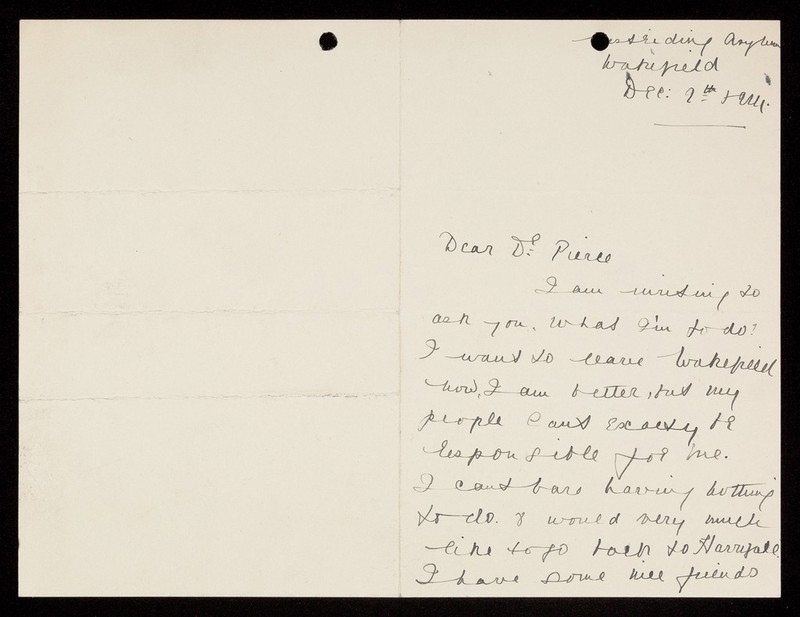 Westriding Asylum
Wakefield
Dec: 7th
Dear Dr: Pierce
I am writing to
ask you, what I'm to do?
I want to leave Wakefield
now, I am better, but my
people cant exactly be
responsible for me.
I cant bare having nothing
to do. I would very much
like to go back to Harrogate
I have some nice friends